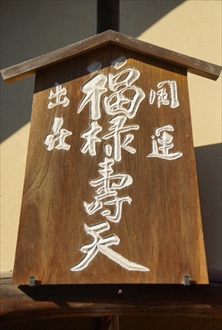 開運
福禄寿天
出世